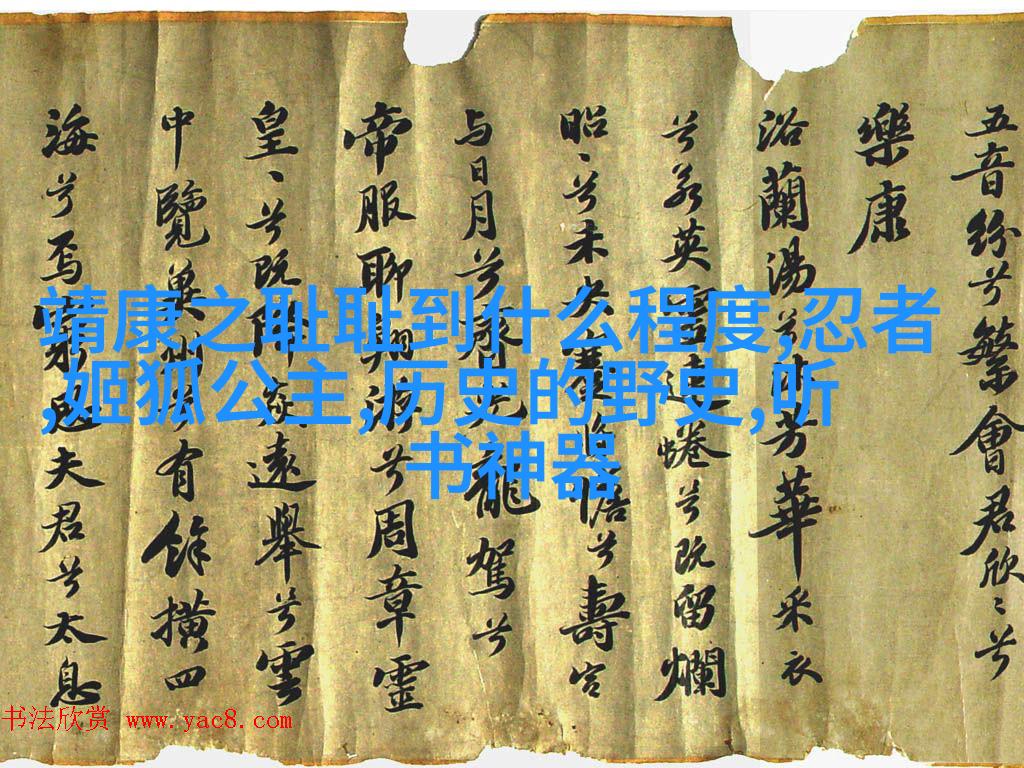 五音紛兮繁會君欣〻兮
樂康
浴蘭湯兮沐芳華采衣
兮若英靈連蜷兮既留爛
昭〻兮未央蹇將憺兮壽宮
与日月兮光龍駕兮
帝服聊翱游兮周章靈
皇〻兮既降猋遠舉兮雲
中覽冀州兮有餘橫四
海兮焉窮思夫君兮太息
靖康之耻耻到什么程度,忍者
,姬狐公主,历史的野史,听
书神器
书法欣赏 www.yac8.com